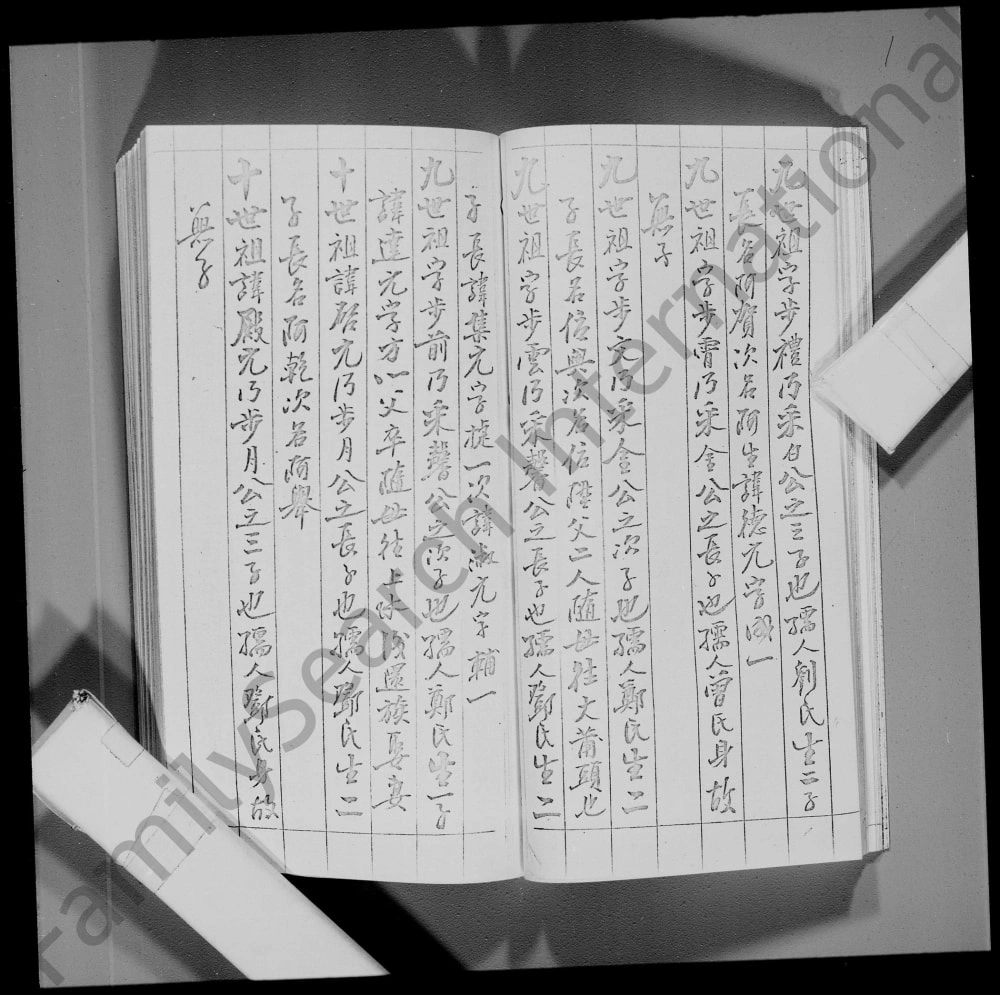 九世祖字步禮乃采白公之三子也孺人劉氏生二子
長名阿賀次名阿生諱德元字國一
九世祖字步霄乃采金公之長子也孺人曾氏身故
無子
九世祖字步文乃采金公之次子也孺人鄭氏生二
子長名位興次名位陞父二人隨母往大莆頭也
九世祖字步雲乃采馨公之長子也孺人鄧氏生二
子長諱集元字捷一次諱淑元字輔一
九世祖字步前乃采馨公之次子也孺人鄭氏生一子
諱達元字方一父卒隨母往上水後還族娶妻
十世祖諱啟元乃步月公之長子也孺人鄧氏生二
子長名阿乾次名阿舉
十世祖諱殿元乃步月公之三子也孺人鄧氏身故
無子
FamilySearch International